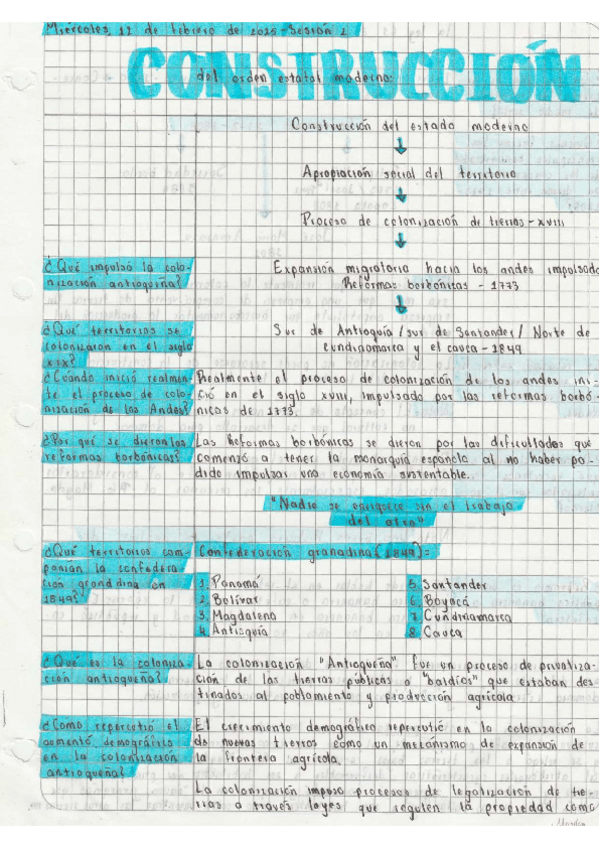 Miércoles, 12 de febrero de 2025 - Sesión 2
CONSTRUCCIÓN
del orden estatal moderno:
Construcción del estado moderno
Apropiación social del territorio
Proceso de colonización de tierras - XVIII
¿Qué impulsó la colo-
nización antioqueña?
Expansión migratoria hacia los andes impulsada
Reformas borbónicas - 1773
¿Qué territorios se
colonizaron en el siglo
XIX?
Sur de Antioquía / sur de Santander / Norte de
cundinamarca y el cauca - 1849
¿Cuándo inició realmen-
te el proceso de colo-
nización de los Andes?
Realmente el proceso de colonización de los andes ini-
ció en el siglo XVIII, impulsado por las reformas borbó-
nicas de 1773.
¿Por qué se dieron las
reformas borbónicas?
Las Reformas borbónicas se dieron por las dificultades que
comenzó a tener la monarquía española al no haber po-
dido impulsar una economía sustentable.
"Nadie se enriquece sin el trabajo
del otro"
¿Qué territorios com-
ponían la confedera-
ción grandina en
1849?
Confederación granadina (1849):
1. Panamá
2. Bolívar
3. Magdalena
4. Antioquía
5. Santander
6. Boyacá
7. Cundinamarca
8. Cauca
¿Qué es la coloniza-
ción antioqueña?
La colonización "Antioqueña" fue un proceso de privatiza-
ción de las tierras públicas o "baldíos" que estaban des-
tinados al poblamiento y producción agrícola
¿Como repercutió el
aumentó demográfico
en la colonización
antioqueña?
El crecimiento demográfico repercutió en la colonización
de nuevas tierras como un mecanismo de expansión de
la frontera agrícola.
La colonización impuso procesos de legalización de tie-
rras a través leyes que regulen la propiedad como